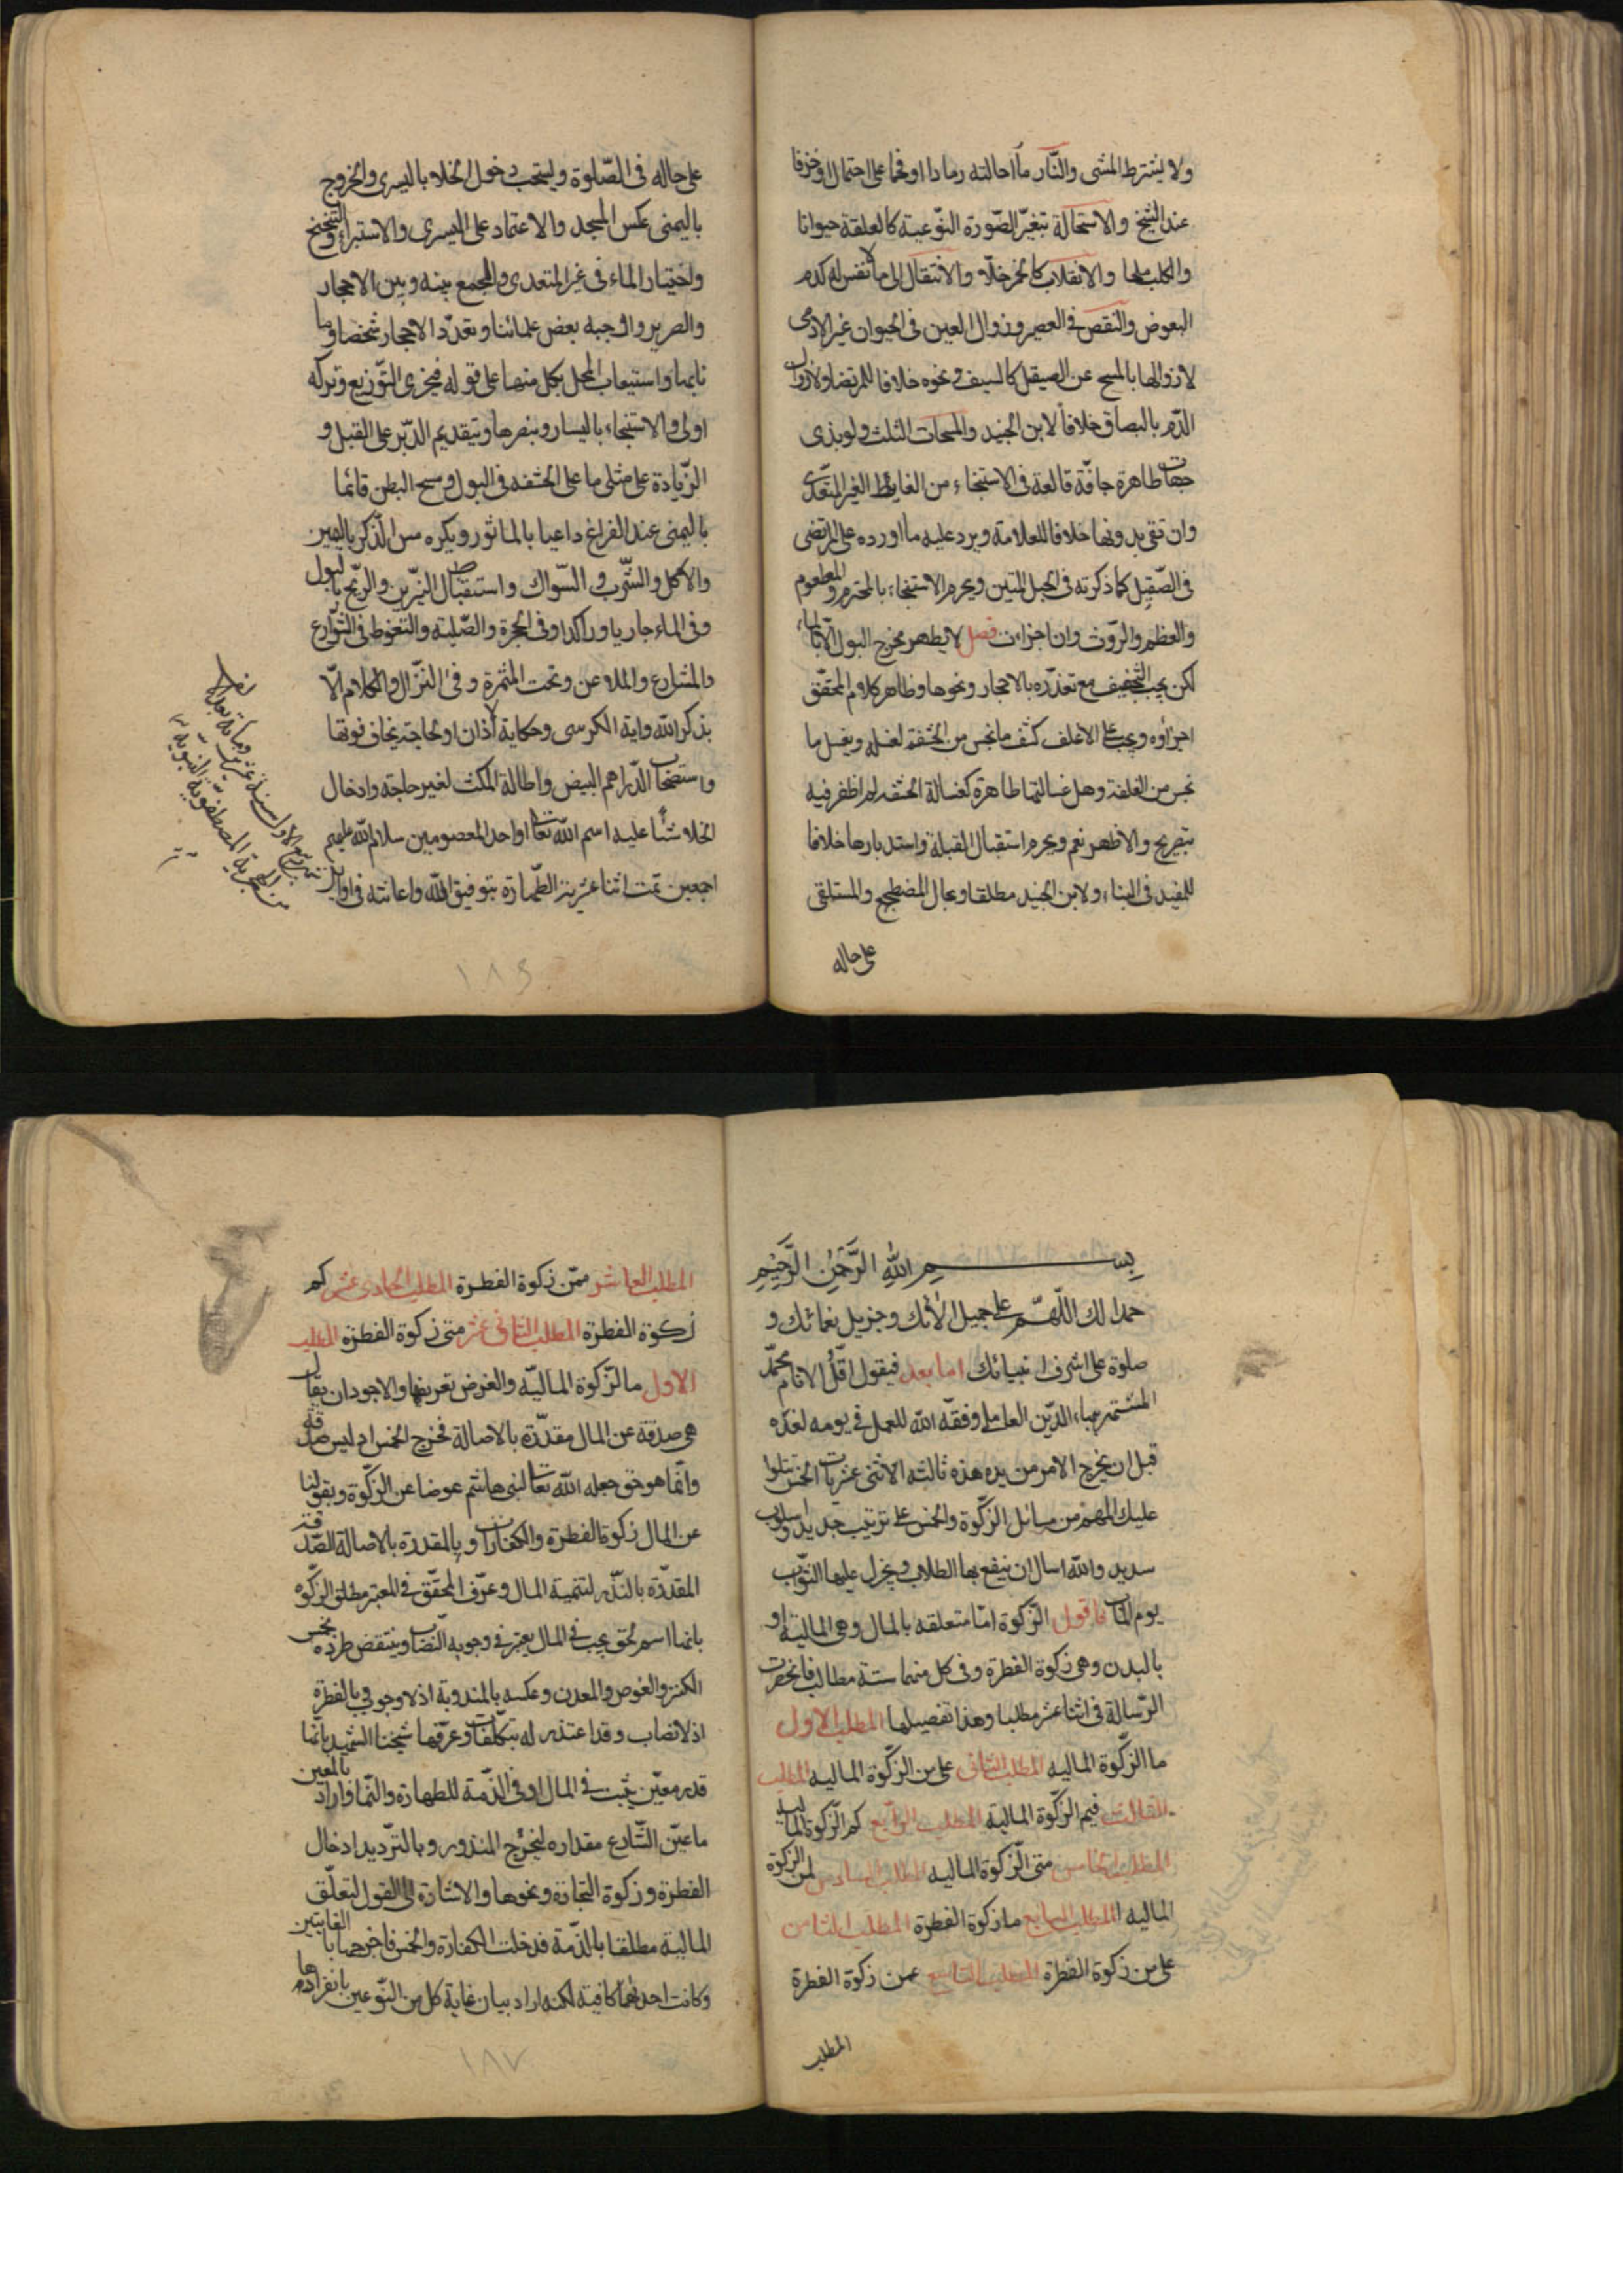 ولا يشترط المشى والنّار ما احالته رمادا او فحما على احتمال او خزفا
عند الشيخ والاستحالة بتغيّر الصّورة النّوعية كالعلقة حيوانا
والكلب ملحا والانقلاب كالخمر خلّا والانتقال الى ما لا نفس له كدم
البعوض والنقص فى العصير وزوال العين فى الحيوان غير الادمى
لا زوالها بالمسح عن الصيقل كالسيف ونحوه خلافا للمرتضى ولا زوال
الدّم بالبصاق خلافا لابن الجنيد والمسحات الثلث ولو بذى
جهات طاهرة جافّة قالعة فى الاستنجاء من الغايط الغير المتعدّى
وان تقى بدونها خلافا للعلامة ويرد عليه ما اورده على المرتضى
فى الصّقيل كما ذكرته فى الحبل المتين ويحرم الاستنجاء بالمحترم والمطعوم
والعظم والرّوث وان اجزات فصل لا يطهر مخرج البول الّا بالماء
لكن يجب التخفيف مع تعذره بالاحجار ونحوها وظاهر كلام المحقّق
اجزاؤه ويجب على الاغلف كشف ما نجس من الحشفة لغسله ويغسل ما
نجس من الغلفة وهل غسالتها طاهرة كغسالة الحشفه لم اظفر فيه
بتصريح والاظهر نعم ويحرم استقبال القبلة واستدبارها خلافا
للمفيد فى البناء ولابن الجنيد مطلقا وبحال المضطجع والمستلقى
على حاله
على حاله فى الصّلوة ويستحب دخول الخلاء باليسرى والخروج
باليمنى عكس المسجد والاعتماد على اليسرى والاستبراء والتنحنح
واختيار الماء فى غير المتعدى والجمع بينه وبين الاحجار
والصرير واوجبه بعض علمائنا وتعدّد الاحجار شخصا وما
نابها واستيعاب المحل بكل منها على قوله فيجزى التّوزيع وتركه
اولى والاستنجاء باليسار وبنصرها وتقديم الدّبر على القبل و
الزّيادة على مثلى ما على الحشفه فى البول ومسح البطن قائما
باليمنى عند الفراغ داعيا بالماثور ويكره مس الذّكر باليمين
والاكل والشّرب والسّواك واستقبال النيّرين والرّيح بالبول
وفى الماء جاريا وراكدا وفى الجحرة والصّلبة والتغوط فى الشّوارع
والمشارع والملاعن وتحت المثمرة وفىء النزّال والكلام الّا
بذكر الله واية الكرسى وحكاية الاذان او لحاجة يخاف فوتها
واستصحاب الدّراهم البيض واطالة المكث لغير حاجة وادخال
الخلاء شيئا عليه اسم الله تعالى او احد المعصومين سلام الله عليهم
اجمعين تمت اثنا عشرية الطّهارة بتوفيق الله واعانته فى اوايل
١٨٦
بسم الله الرّحمن الرّحيم
حمدا لك اللّهمّ على جميل الائك وجزيل نعمائك و
صلوة على اشرف انبيائك اما بعد فيقول اقلّ الانام محمّد
المشتهر ببهاء الدّين العاملى وفقه الله للعمل فى يومه لغده
قبل ان يخرج الامر من يده هذه ثالثة الاثنى عشريات الخمس تتلوا
عليك المهم من مسائل الزّكوة والخمس على ترتيب جديد واسلوب
سديد والله اسال ان ينفع بها الطلاب ويجزل عليها الثواب
يوم الماب فاقول الزّكوة امّا متعلقه بالمال وهى المالية او
بالبدن وهى زكوة الفطرة وفى كل منهما ستة مطالب فانحصرت
الرّسالة فى اثنا عشر مطلبا وهذا تفصيلها المطلب الاول
ما الزّكوة الماليه المطلب الثانى على من الزّكوة الماليه المطلب
الثالث فيم الزّكوة المالية المطلب الرّابع كم الزّكوة المالية
المطلب الخامس متى الزّكوة الماليه المطلب السادس لمن الزكوة
الماليه المطلب السابع ما زكوة الفطرة المطلب الثامن
على من زكوة الفطرة المطلب التاسع عمن زكوة الفطرة
المطلب
المطلب العاشر ممّن زكوة الفطرة المطلب الحادى عشر كم
زكوة الفطرة المطلب الثانى عشر متى زكوة الفطرة المطلب
الاول ما الزّكوة الماليّه والغرض تعريفها والاجود ان يقال
هى صدقة عن المال مقدّرة بالاصالة فخرج الخمس اذ ليس صدقة
وانّما هو حق جعله الله تعالى لبنى هاشم عوضا عن الزّكوة وبقولنا
عن المال زكوة الفطرة والكفارات وبالمقدرة بالاصالة الصّدقة
المقدّرة بالنّذر لتتمية المال وعرّف المحقّق فى المعتبر مطلق الزّكوة
بانها اسم لحق يجب فى المال يعتبر فى وجوبه النّصاب وينتقض طرده بخمس
الكنز والغوص والمعدن وعكسه بالمندوبة اذ لا وجوب وبالفطرة
اذ لا نصاب وقد اعتذر له بتكلّفات وعرّفها شيخنا الشّهيد بانّها
قدر معيّن يثبت فى المال او فى الذّمة للطهارة والنّماء واراد بالمعين
ما عيّن الشّارع مقداره ليخرج المنذور وبالتّرديد ادخال
الفطرة وزكوة التجارة ونحوها والاشارة الى القول لتعلّق
المالية مطلقا بالذّمة فدخلت الكفارة والخمس فاخرجها بالغايتين
وكانت احداهما كافية لكنه اراد بيان غاية كل من النّوعين بانفرادها
١٨٧